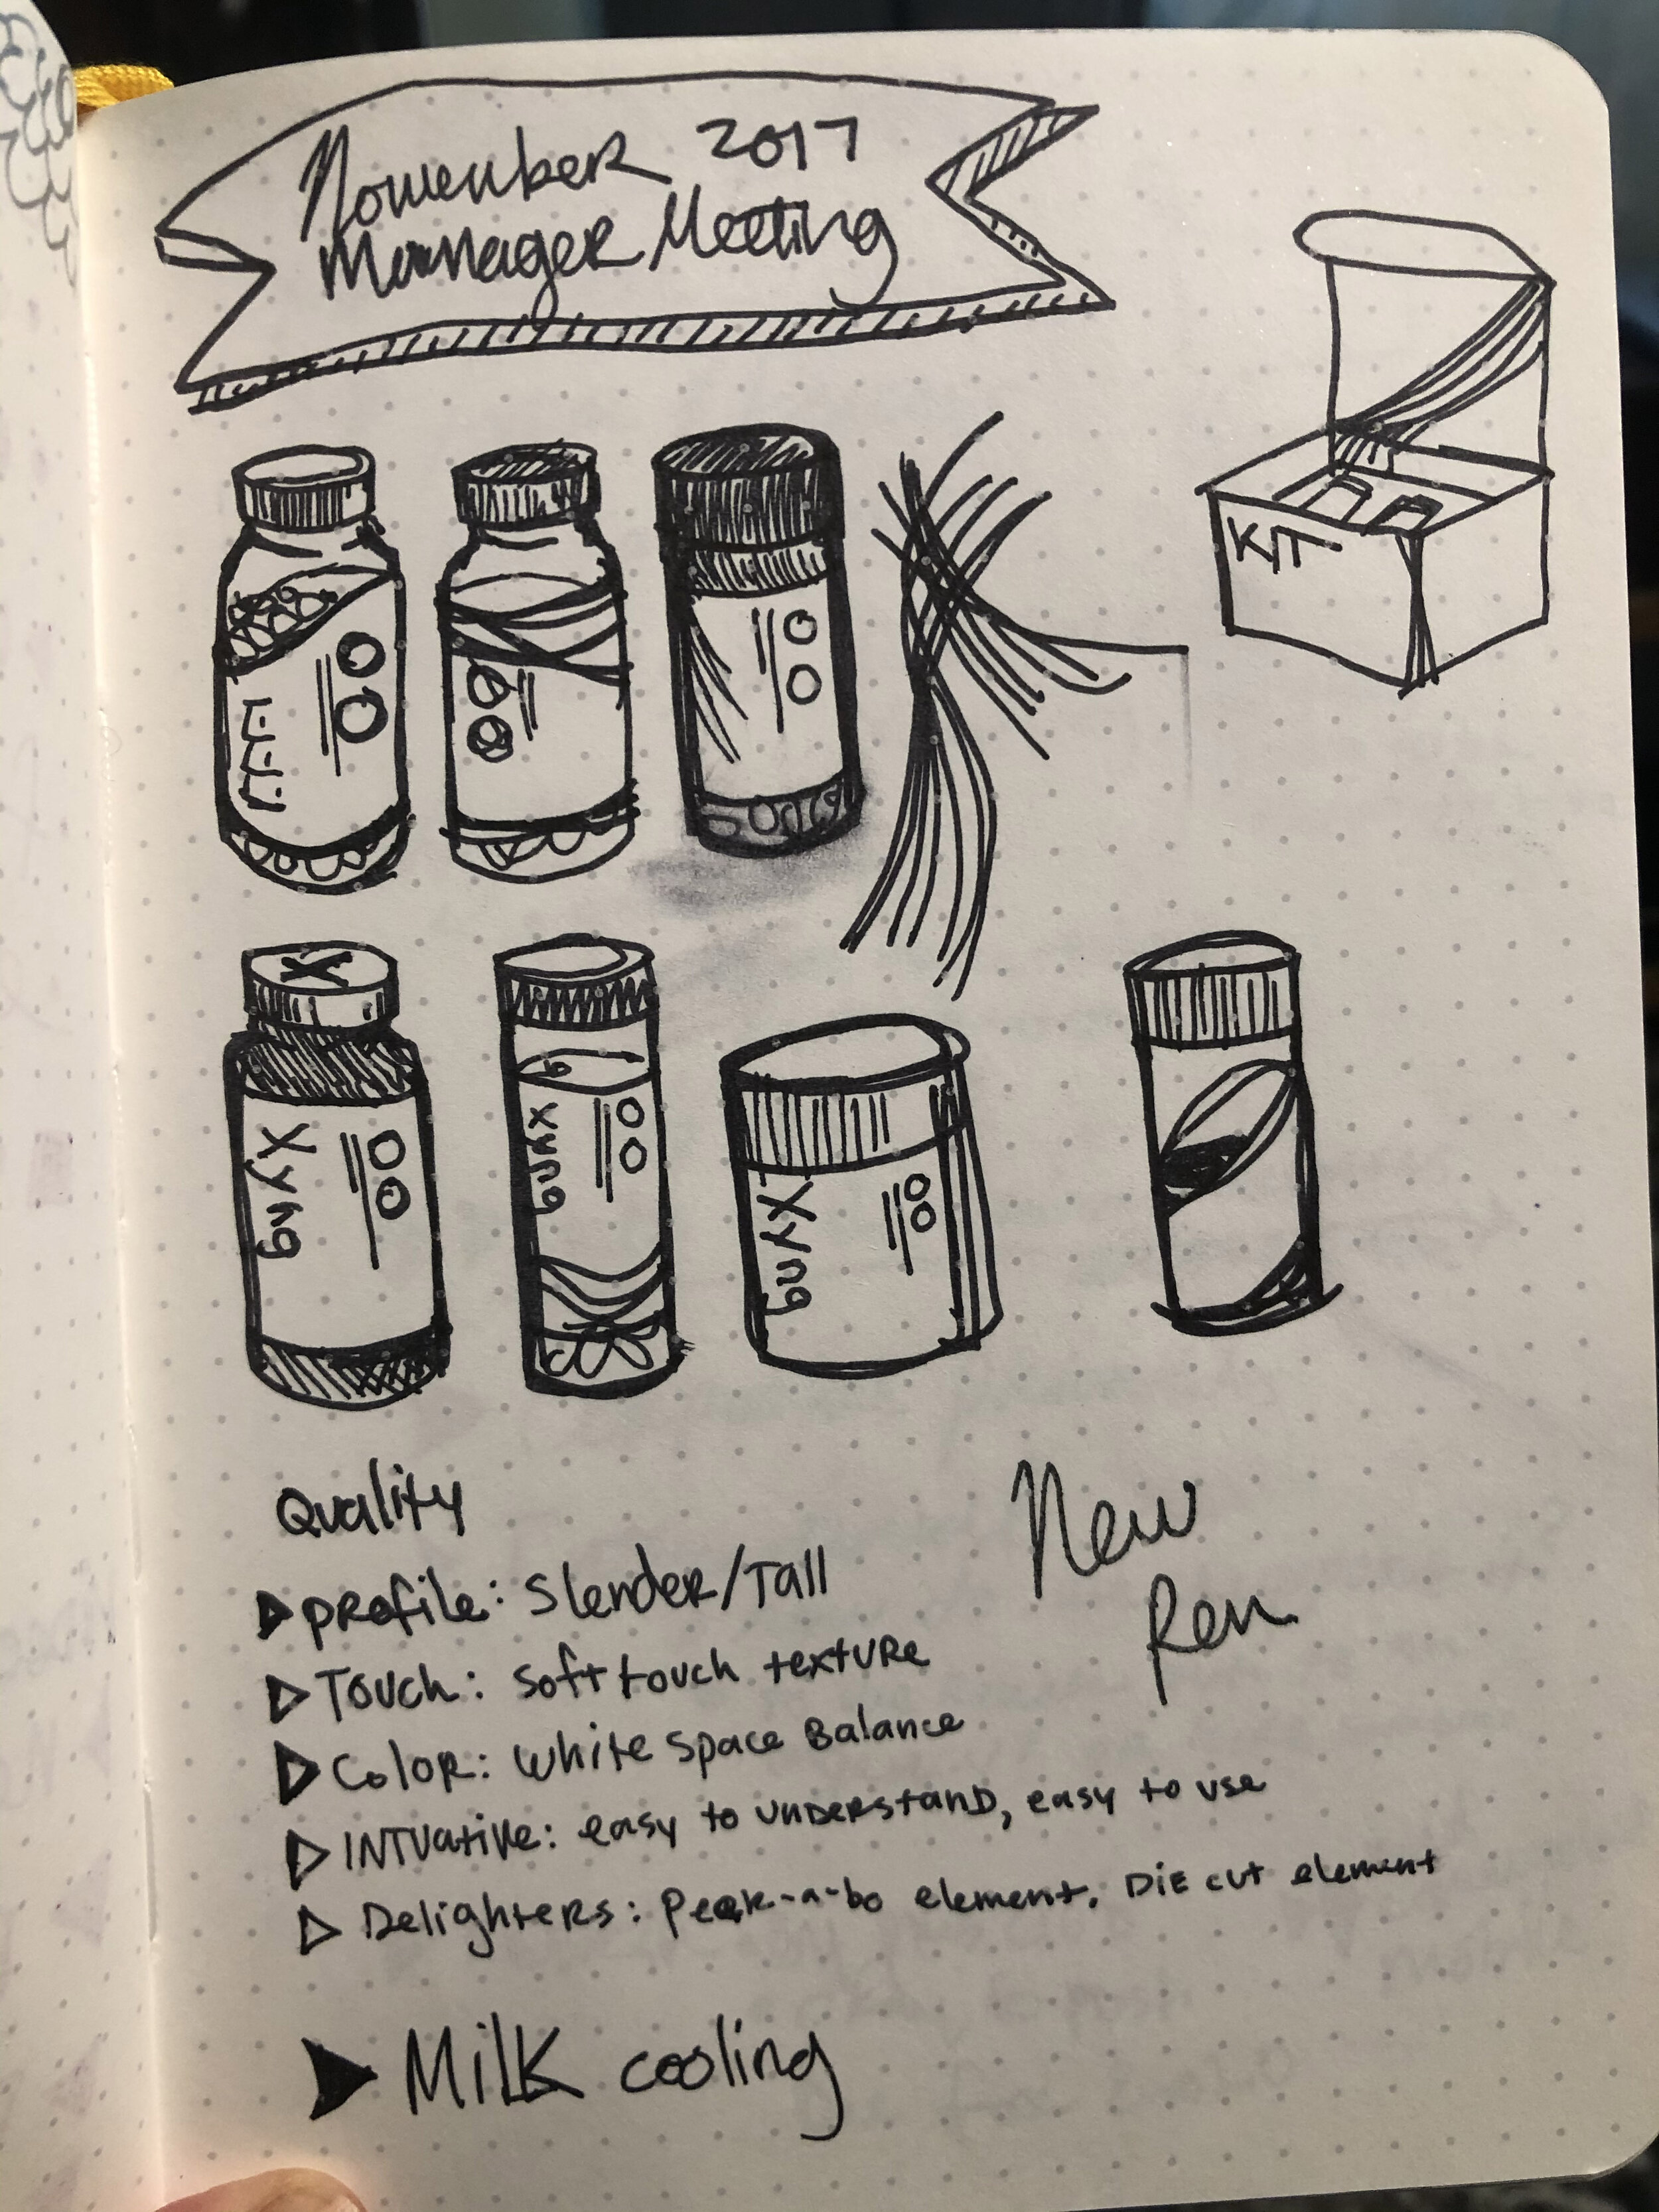 November 2017
Manager Meeting
KIT
Xyng
Xyng
Xyng
X
Quality
Profile: Slender/Tall
Touch: Soft touch texture
Color: White Space Balance
INTUative: easy to understand, easy to use
Delighters: Peek-a-bo element. Die cut element
New
Pen
Milk cooling